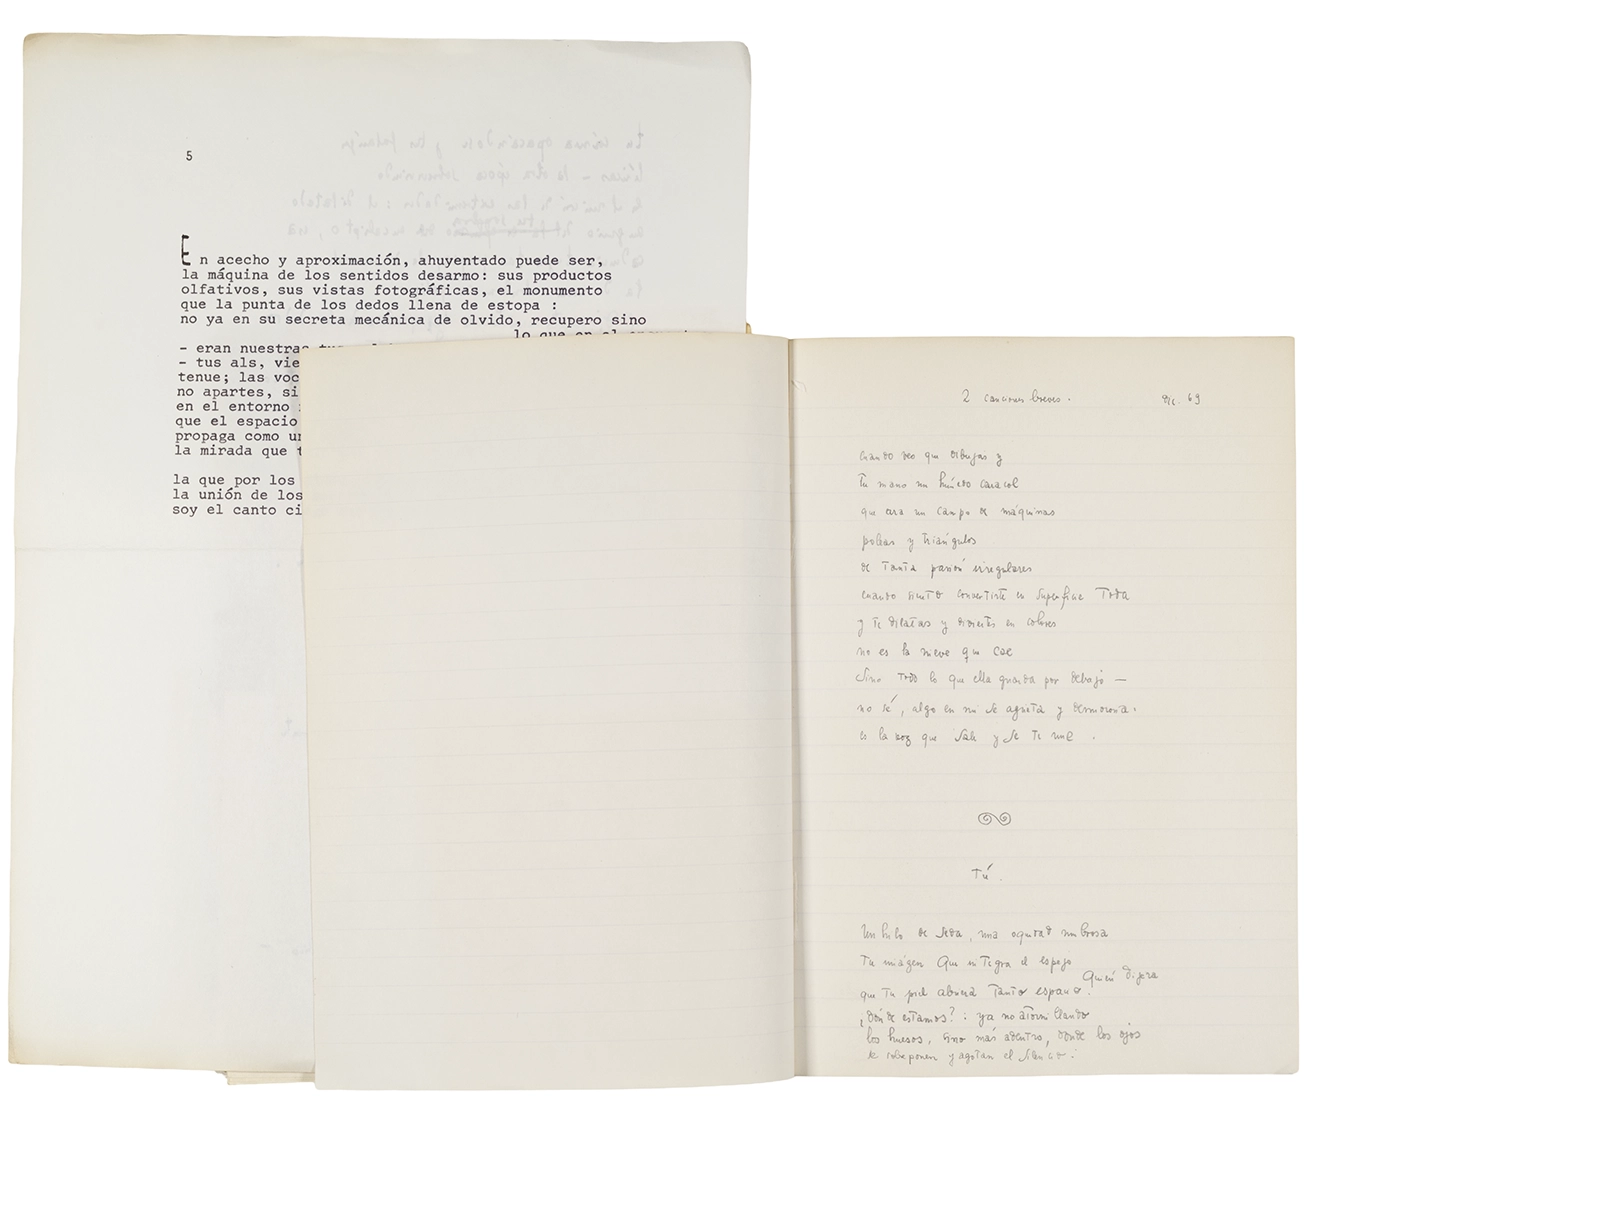 5
En acecho y aproximación, ahuyentado puede ser,
la máquina de los sentidos desarmo: sus productos
olfativos, sus vistas fotográficas, el monumento
que la punta de los dedos llena de estopa :
no ya en su secreta mecánica de olvido, recupero sino
lo que en el
- eran nuestras
- tus als, vie
tenue; las voc
no apartes, si
en el entorno
que el espacio
propaga como un
la mirada que t
la que por los
la unión de los
soy el canto ci
2 canciones breves. dic. 69
cuando veo que dibujas y
tu mano un húmedo caracol
que ara un campo de máquinas
poleas y triángulos
de tanta pasión irregulares
cuando siento convertirte en superficie toda
y te dilatas y diviertes en colores
no es la nieve que cae
sino todo lo que ella guarda por debajo —
no sé, algo en mi se agrieta y desmorona.
es la voz que sale y se te une .
Tú.
Un hilo de seda, una oquedad umbrosa
tu imágen que integra el espejo
Quién dijera
que tu piel abriera tanto espacio.
¿dónde estamos? : ya no atornillando
los huesos, sino más adentro, donde los ojos
se sobreponen y agotan el silencio.